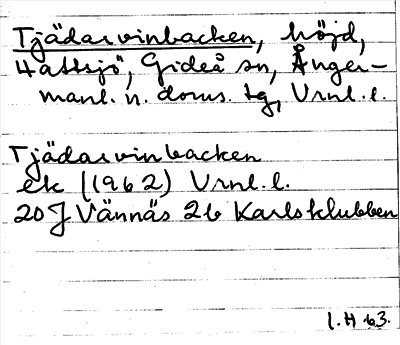 Tjädarvinbacken, höjd,
Hattsjö, Gideå sn, Ånger-
manl. n. doms. tg, Vrnl. l.
Tjädarvinbacken
ek (1962) Vrnl. l.
20J Vännäs 2b Karlsklubben
I. H 63.